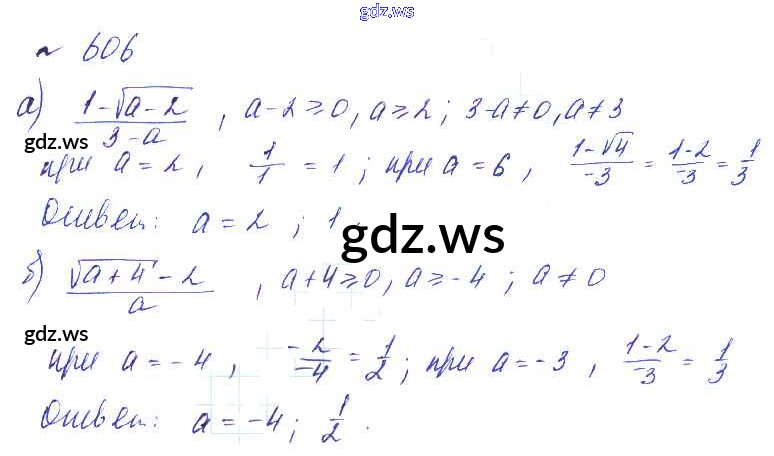 gdz.ws
~ 606
а) (1-√(a-2))/(3-a) , a-2≥0, a≥2 ; 3-a≠0, a≠3
gdz.ws
при a=2, 1/1 = 1 ; при a=6, (1-√4)/-3 = (1-2)/-3 = 1/3
Ответ: a=2 ; 1.
gdz.ws
б) (√(a+4)-2)/a , a+4≥0, a≥-4 ; a≠0
gdz.ws
при a=-4, -2/-4 = 1/2 ; при a=-3, (1-2)/-3 = 1/3
Ответ: a=-4 ; 1/2.